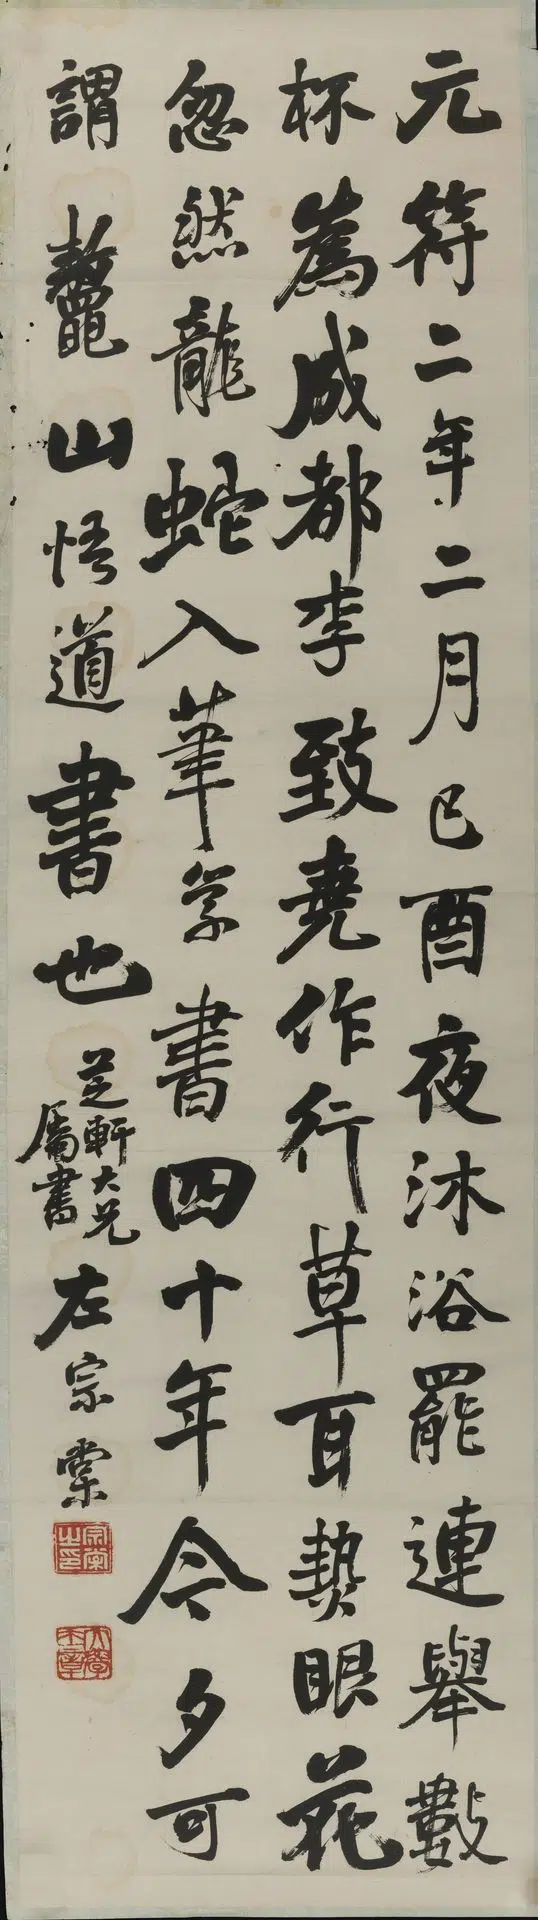 元符二年二月己酉夜沐浴罷連舉數
杯為成都李致堯作行草耳熱眼花
忽然龍蛇入筆學書四十年今夕可
謂鼇山悟道書也
芝軒大兄
屬書
左宗棠
宗棠之印
大學士章